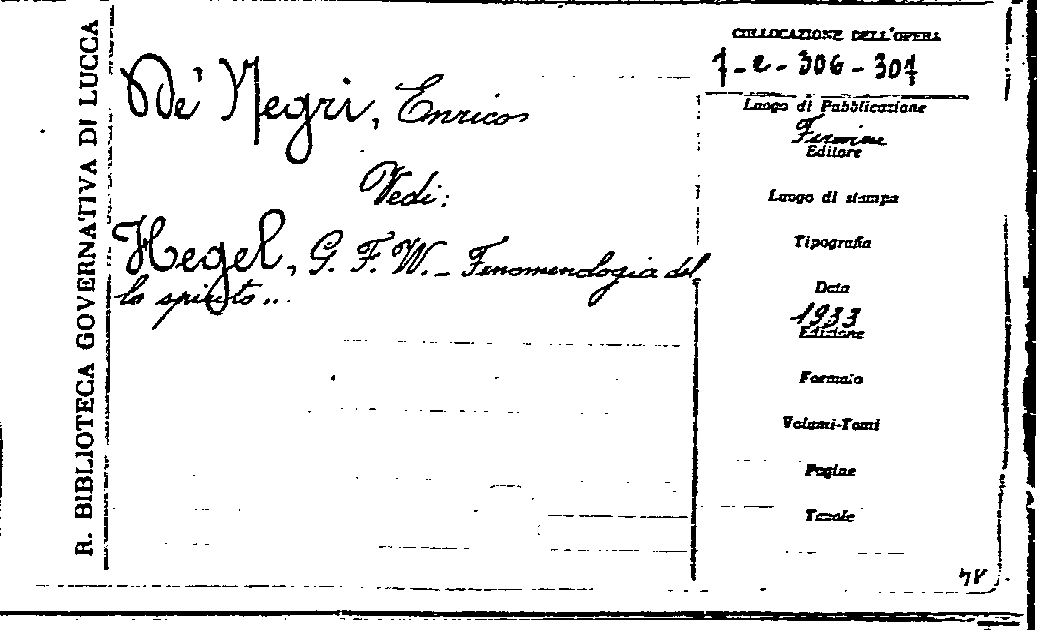 R. BIBLIOTECA GOVERNATIVA DI LUCCA
De' Negri, Enrico
Vedi:
Hegel, G. F. W. - Fenomenologia del
lo spirito...
COLLOCAZIONE DELL'OPERA
7-e-306-307
Luogo di Pubblicazione
Firenze
Editore
Luogo di stampa
Tipografia
Data
1933
Edizione
Formato
Volumi-Tomi
Pagine
Tavole